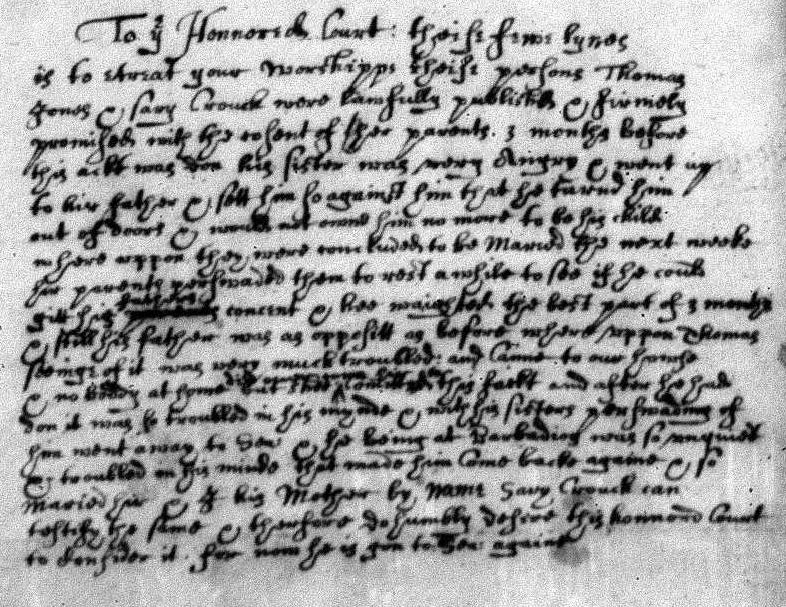 To ye Honnored Court: theise fewe lynes
is to etreat your worshipps theise persons Thomas
Jones & Sary Crouck were lawfully publisht & firmely
promised with the consent of ther parents. 3 months before
this ackt was don his sister was very Angry & went up
to his father & sett him so against him that he turnd him
out of doors & would not owne him no more to be his child
where uppon they were concluded to be Maried the next weeke
her parents perswaded them to rest a while to see if he could
gitt his fathers concent & hee waighted the best part of 3 months
& still his father was as oppositt as before where uppon Thomas
seeinge of it was very much troubled: and Came to our howse
& no body at home but they Comitted this fackt and after he had
don it was so troubled in his mynde & with his sisters perswading of
him went away to Sea & he being at Barbadios was so unquiet
& troubled in his minde that made him Come backe againe & so
Maried her & I her Mother by name Sary Crouck can
testify the same & therfore do humbly desire this honnord Court
to Consider it for now he is gon to Sea againe